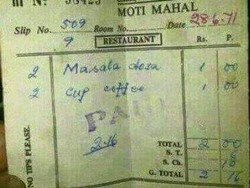 MOTI MAHAL
Slip No. 509 Room No. Date 28.6.71
9 RESTAURANT Rs. P.
2 Masala dosa 1 00
2 cup coffee 1 00
PAID
2-16
TOTAL 2 00
S. T.
S. Ch.
G. TOTAL 2 16
NO TIPS PLEASE